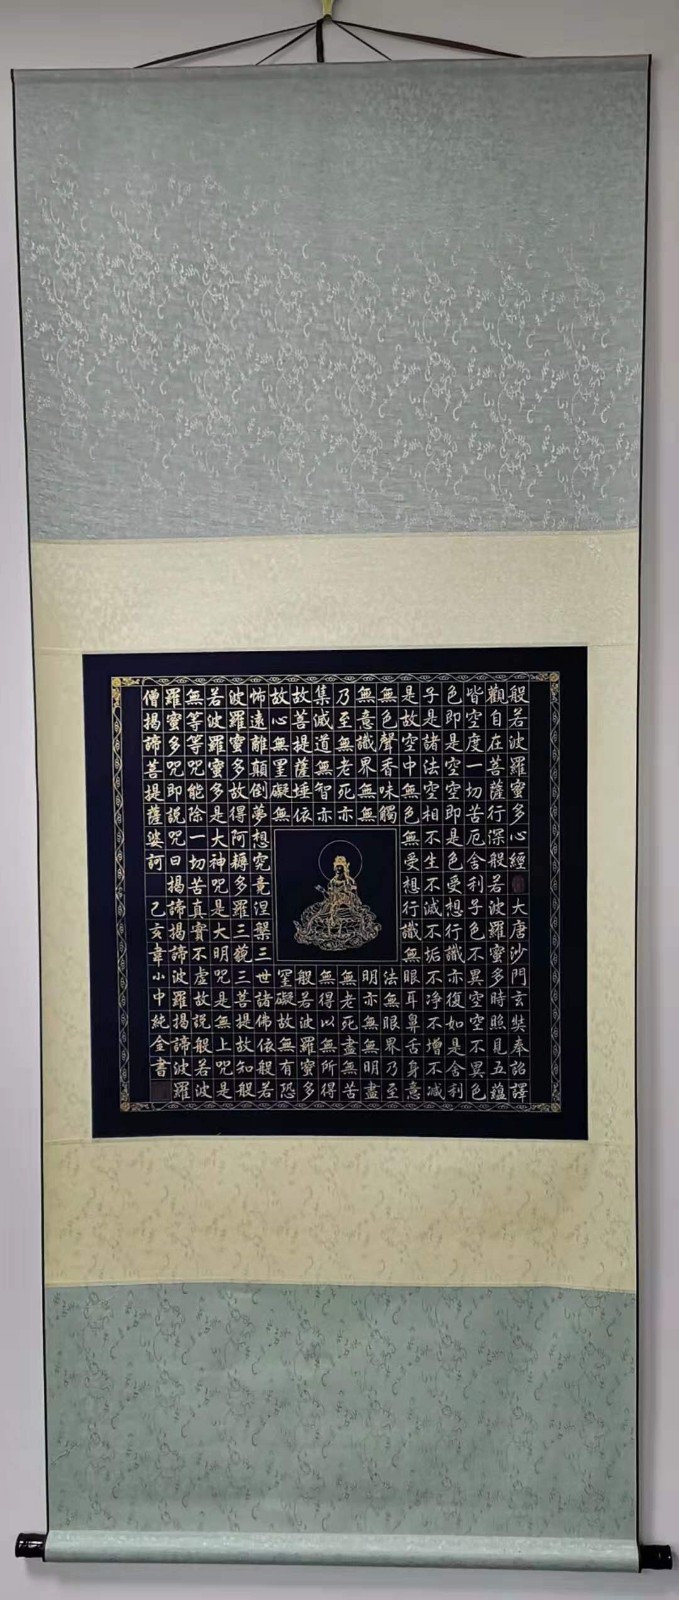 般若波羅蜜多心經 大唐沙門玄奘奉詔譯
觀自在菩薩行深般若波羅蜜多時照見五蘊
皆空度一切苦厄舍利子色不異空空不異色
色即是空空即是色受想行識亦復如是舍利
子是諸法空相不生不滅不垢不净不增不减
是故空中無色無受想行識無眼耳鼻舌身意
無色聲香味觸法無眼界乃至
無意識界無無明亦無無明盡
乃至無老死亦無老死盡無苦
集滅道無智亦無得以無所得
故菩提薩埵依般若波羅蜜多
故心無罣礙無罣礙故無有恐
怖遠離顛倒夢想究竟涅槃三世諸佛依般若
波羅蜜多故得阿耨多羅三藐三菩提故知般
若波羅蜜多是大神咒是大明咒是無上咒是
無等等咒能除一切苦真實不虛故說般若波
羅蜜多咒即說咒曰揭諦揭諦波羅揭諦波羅
僧揭諦菩提薩婆訶 己亥韋小中純金書